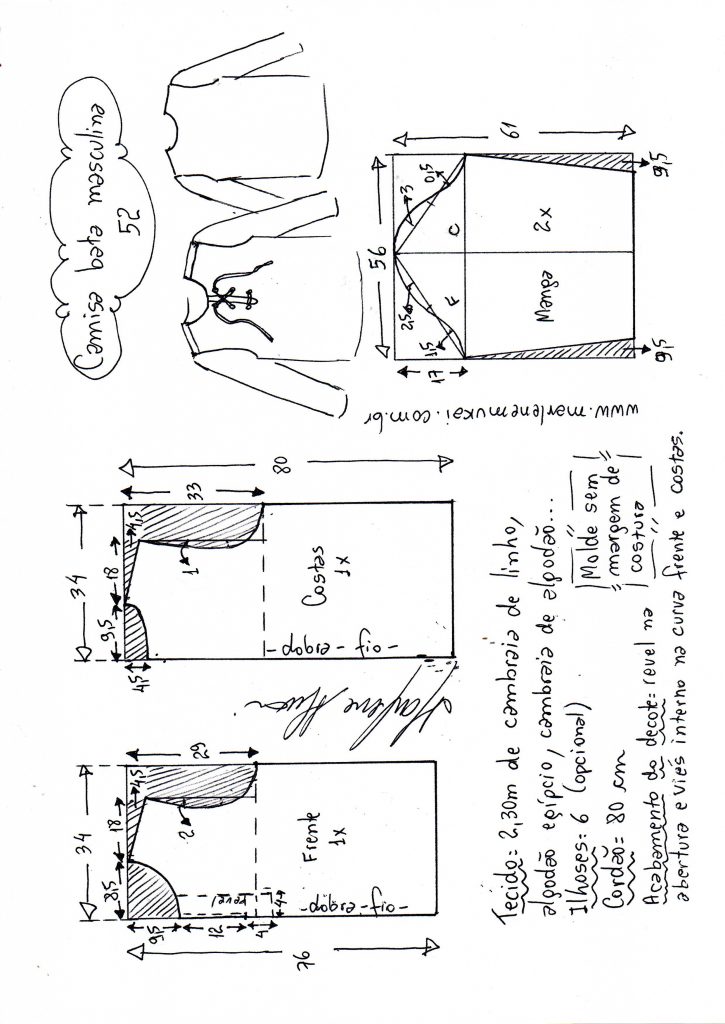 Camisa bata masculina
52
Frente
1x
-fio-
-dobra-
revel
34
8,5
18
4,5
29
2
9,5
12
4
4
76
Costas
1x
-fio-
-dobra-
34
9,5
18
4,5
33
1
4,5
80
56
61
17
2,5
1,5
3
0,5
F
C
Manga
2x
9,5
9,5
www.marlenemukai.com.br
Marlene Mukai
Tecido= 2,30m de cambraia de linho,
algodão egípcio, cambraia de algodão...
Ilhoses= 6 (opcional)
Cordão= 80 cm
Acabamento do decote= revel na
abertura e viés interno na curva frente e costas.
Molde sem
margem de
costura